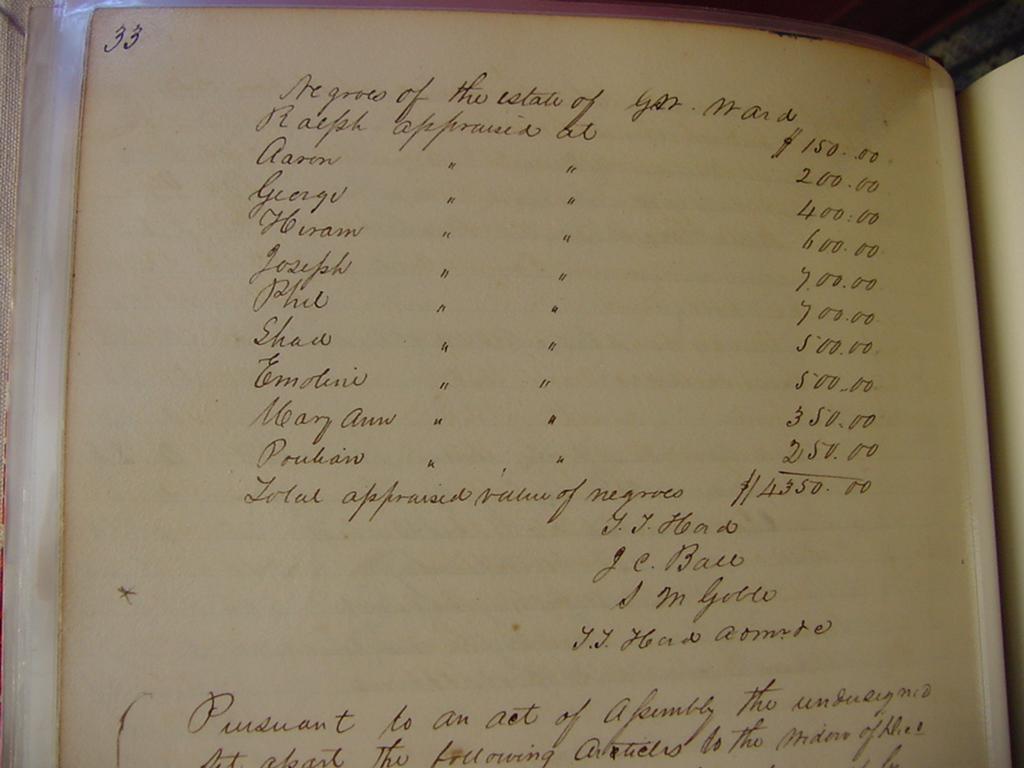 33
Negroes of the estate of G.W. Ward
Ralph appraised at $150.00
Aaron " " 200.00
George " " 400.00
Hiram " " 600.00
Joseph " " 700.00
Phil " " 700.00
Shad " " 500.00
Emoline " " 500.00
Mary Ann " " 350.00
" " 250.00
Total appraised value of negroes $4350.00
T. T. Hord
J C. Ball
S M Goble
T.T. Hord
*
Pursuant to an act of Assembly the undersigned
Set apart the following Articles to the widow of